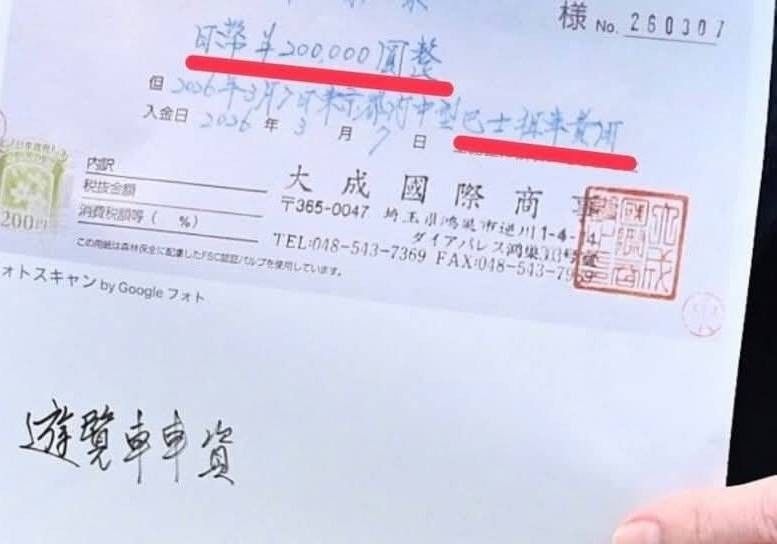 様 No. 260307
日幣￥200,000圓整
但 2026年3月7日東京都府中型巴士租車費用
入金日 2026年3月7日
200円
内訳
税抜金額
消費税額等（　%）
この用紙は森林保全に配慮したFSC認証パルプを使用しています。
大成國際商事
〒365-0047 埼玉県鴻巣市逆川1-4-14
ダイアパレス鴻巣
TEL:048-543-7369 FAX:048-543-7969
ォトスキャン by Google フォト
遊覽車車資